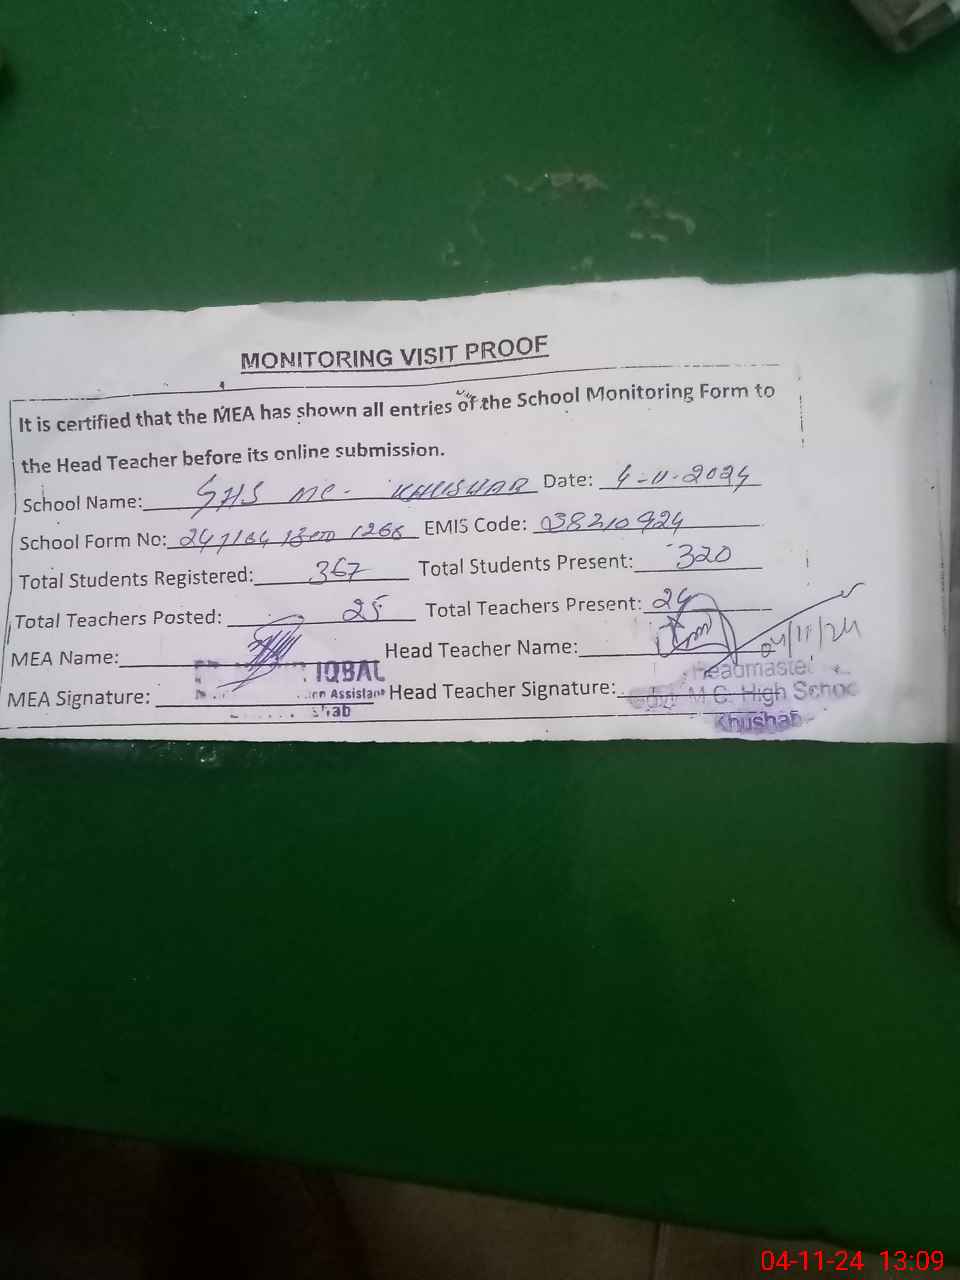 MONITORING VISIT PROOF
It is certified that the MEA has shown all entries of the School Monitoring Form to
the Head Teacher before its online submission.
School Name: GHS MC- KHUSHAB Date: 4-11-2024
School Form No: EMIS Code: 38210924
Total Students Registered: 367 Total Students Present: 320
Total Teachers Posted: 25 Total Teachers Present: 24
MEA Name: Head Teacher Name: 04/11/24
IQBAL Headmaster
MEA Signature: Assistant Head Teacher Signature: M.C. High School
Khushab
04-11-24 13:09